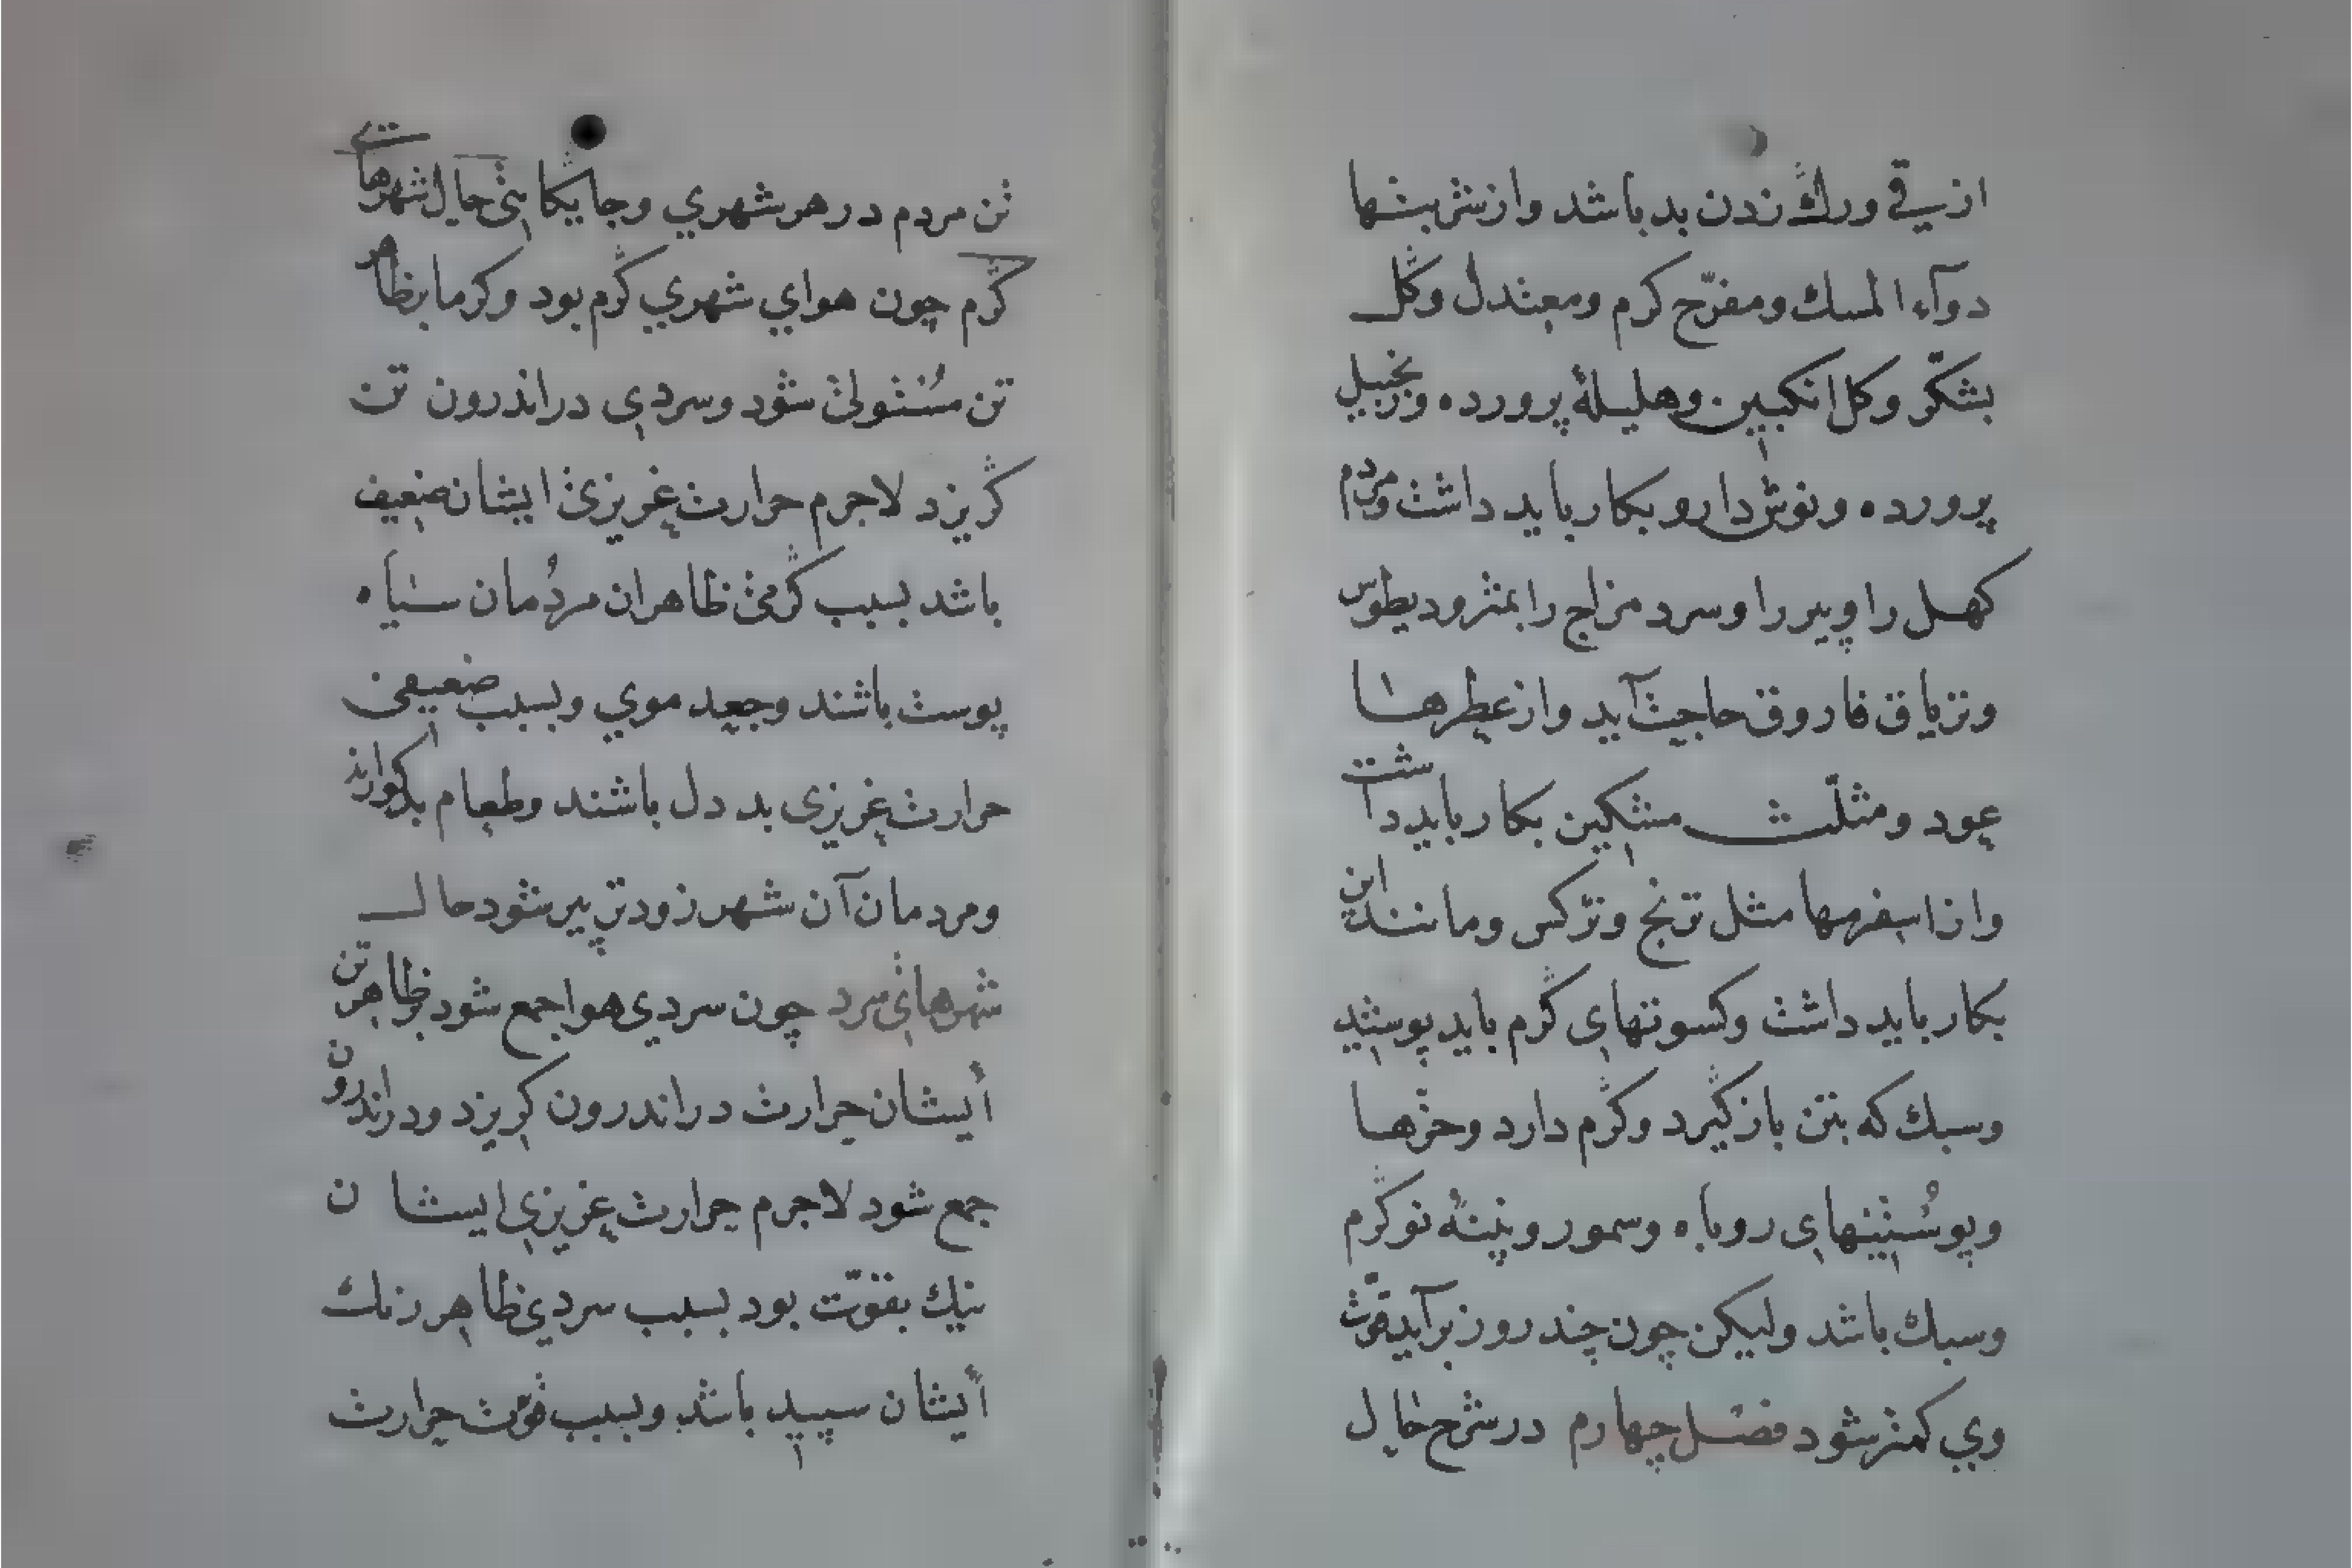 از پی قی ورگ زدن بد باشد واز شربتها
دوآء المسك ومفرّح كرم ومعتدل وگل
بشكّر وكل انكبین وهلیلهٔ پرورده وزنجبیل
پرورده ونوش دارو بكار باید داشت ومردم
كهل را وپیر را وسرد مزاج را بمثرودیطوس
وتریاق فاروق حاجت آید واز عطرها
عود ومثلّث مشكین بكار باید داشت
واز اسفرمها مثل ترنج ونرگس ومانند این
بكار باید داشت وكسوتهای گرم باید پوشید
وسبك كه بتن باز گیرد وگرم دارد وخزها
وپوستینهای روباه وسمور وپنبهٔ نو گرم
وسبك باشد ولیكن چون چند روز برآید قوّت
وی كمتر شود فصل چهارم در شرح حال
تن مردم در هر شهری وجایگاهی حال شهرهای
گرم چون هوای شهری گرم بود وكرما بر ظاهر
تن مُستولی شود وسردی در اندرون تن
گریزد لاجرم حرارت غریزی ایشان ضعیف
باشد بسبب گرمی ظاهر ان مردُمان سیاه
پوست باشند وجعد موی وبسبب ضعیفی
حرارت غریزی بد دل باشند وطعام بد گوارند
ومردمان آن شهر زودتر پیر شود حال
شهرهای سرد چون سردی هوا جمع شود بر ظاهر تن
أیشان حرارت در اندرون كریزد ودر اندرون
جمع شود لاجرم حرارت غریزی ایشان
نیك بقوّت بود بسبب سردی ظاهر رنك
أیشان سپید باشد وبسبب قوّت حرارت